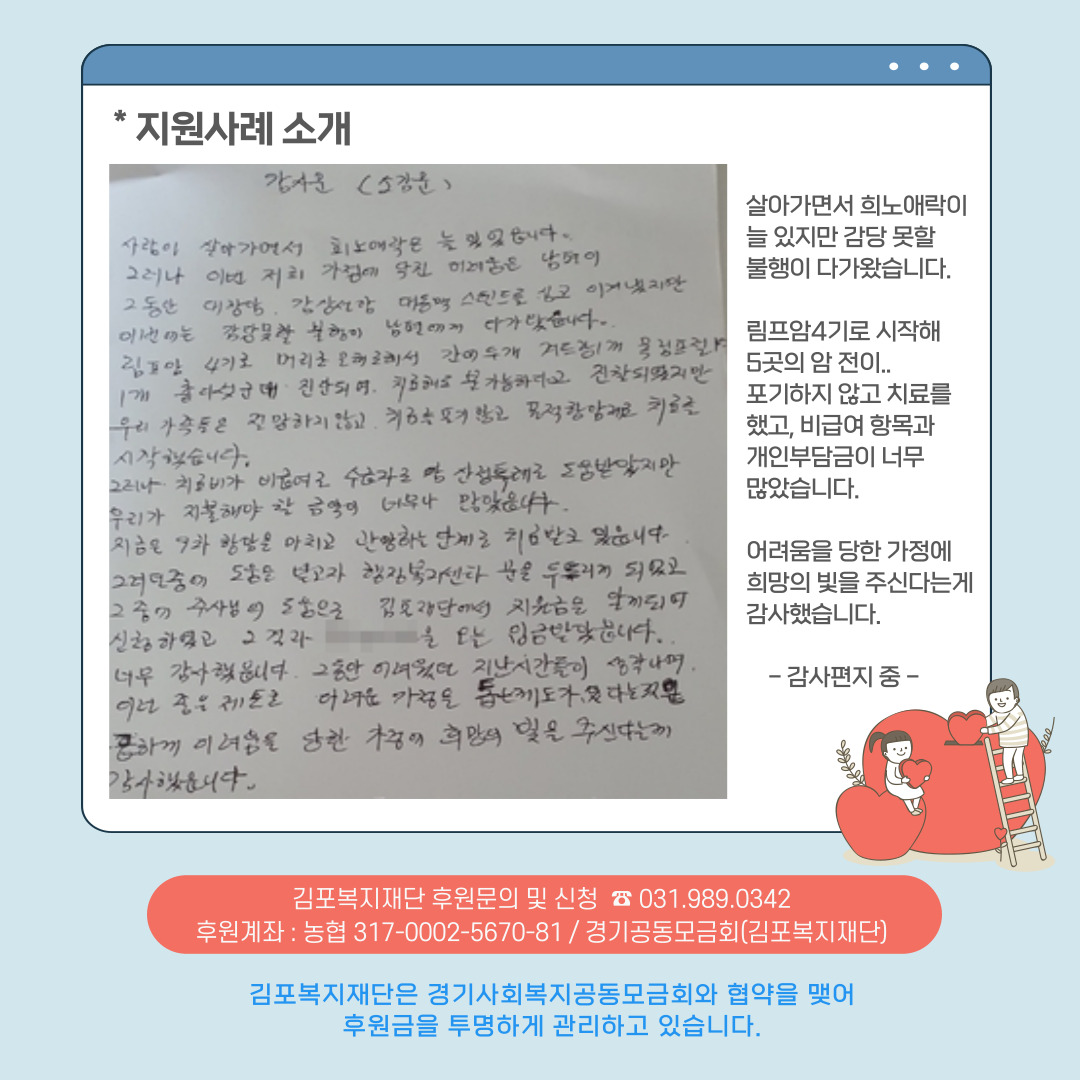 * 지원사례 소개
감사문 (소감문)
사람이 살아가면서 희노애락은 늘 있었습니다.
그러나 이번 저희 가정에 닥친 어려움은 남편이
그동안 대장암, 갑상선암 대동맥 스텐드를 심고 이겨냈지만
이번에는 감당못할 불행이 남편에게 다가왔습니다.
림프암 4기로 머리로 해서 간에 두개 겨드랑이1개 목
1개 총 다섯군데 진단되며. 치료해도 불가능하다고 진찰되었지만
우리 가족들은 절망하지않고. 치료를 포기않고 표적항암제로 치료를
시작했습니다.
그러나 치료비가 비급여로 수급자로 암 산정특례로 도움받았지만
우리가 지불해야 할 금액이 너무나 많았습니다.
지금은 9차 항암을 마치고 관망하는 단계로 치료받고 있습니다.
그러던중에 도움을 받고자 행정복지센타 문을 두드리게 되었고
그 중에 주사님의 도움으로 김포재단에서 지원금을 알게되어
신청하였고 그 결과 을 오는 입금받았습니다.
너무 감사했습니다. 그동안 어려웠던 지난시간들이 생각나며.
이런 좋은 제도로 어려운 가정을 돕는제도가 있다는
하게 어려움을 당한 가정에 희망의 빛을 주신다는게
감사했습니다.
살아가면서 희노애락이
늘 있지만 감당 못할
불행이 다가왔습니다.
림프암4기로 시작해
5곳의 암 전이..
포기하지 않고 치료를
했고, 비급여 항목과
개인부담금이 너무
많았습니다.
어려움을 당한 가정에
희망의 빛을 주신다는게
감사했습니다.
– 감사편지 중 –
김포복지재단 후원문의 및 신청 ☎ 031.989.0342
후원계좌 : 농협 317-0002-5670-81 / 경기공동모금회(김포복지재단)
김포복지재단은 경기사회복지공동모금회와 협약을 맺어
후원금을 투명하게 관리하고 있습니다.